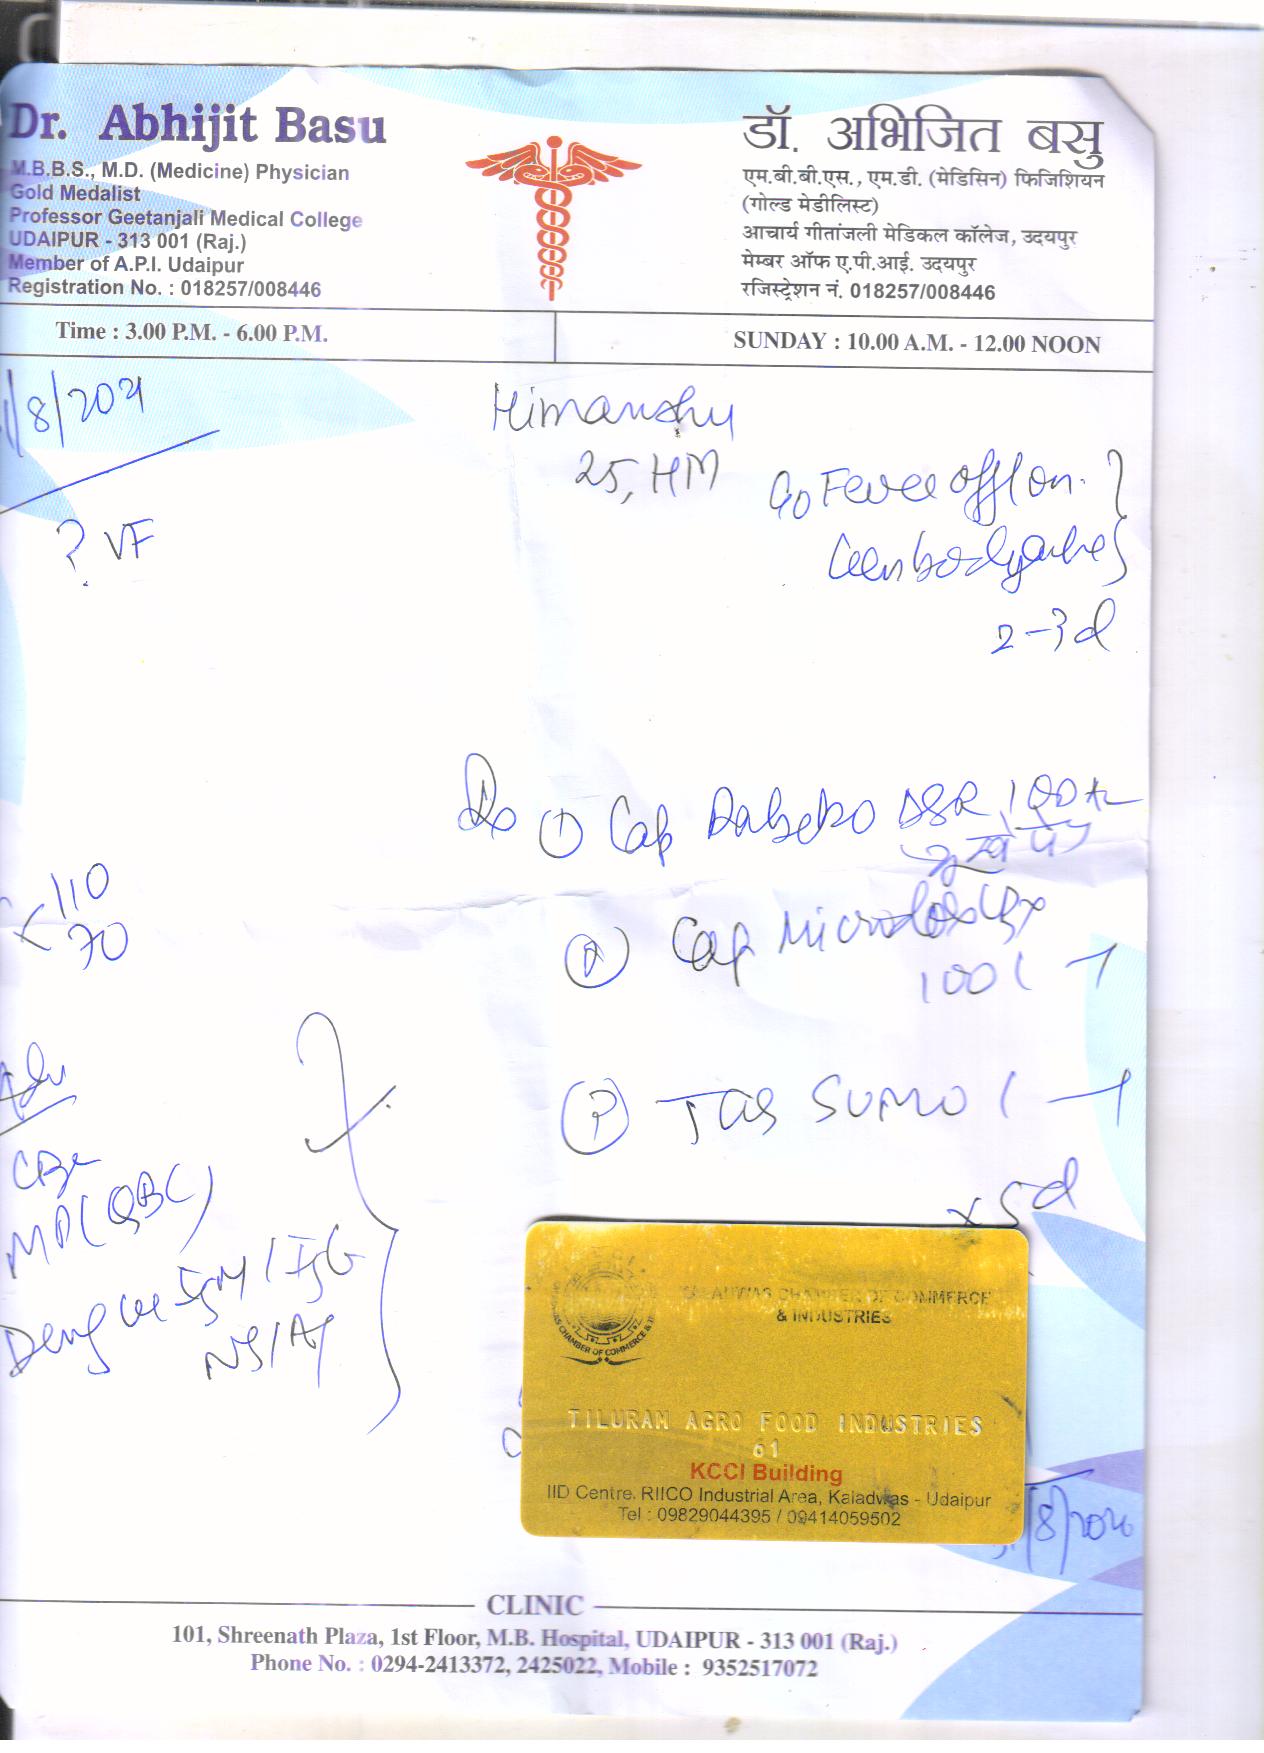 Dr. Abhijit Basu
M.B.B.S., M.D. (Medicine) Physician
Gold Medalist
Professor Geetanjali Medical College
UDAIPUR - 313 001 (Raj.)
Member of A.P.I. Udaipur
Registration No. : 018257/008446
डॉ. अभिजित बसु
एम.बी.बी.एस., एम.डी. (मेडिसिन) फिजिशियन
(गोल्ड मेडीलिस्ट)
आचार्य गीतांजली मेडिकल कॉलेज, उदयपुर
मेम्बर ऑफ ए.पी.आई. उदयपुर
रजिस्ट्रेशन नं. 018257/008446
Time : 3.00 P.M. - 6.00 P.M.
SUNDAY : 10.00 A.M. - 12.00 NOON
Himanshu
25, HM
Fever off/on.
bodyache
2-3d
? VF
Rx ① Cap DSR
110
70
Cap
100
Adv
CBC
MP (QBC)
Dengue IgM / IgG
SUMO
x 5d
CHAMBER OF COMMERCE
& INDUSTRIES
TILURAM AGRO FOOD INDUSTRIES
61
KCCI Building
IID Centre, RIICO Industrial Area, Kaladwas - Udaipur
Tel : 09829044395 / 09414059502
CLINIC
101, Shreenath Plaza, 1st Floor, M.B. Hospital, UDAIPUR - 313 001 (Raj.)
Phone No. : 0294-2413372, 2425022, Mobile : 9352517072